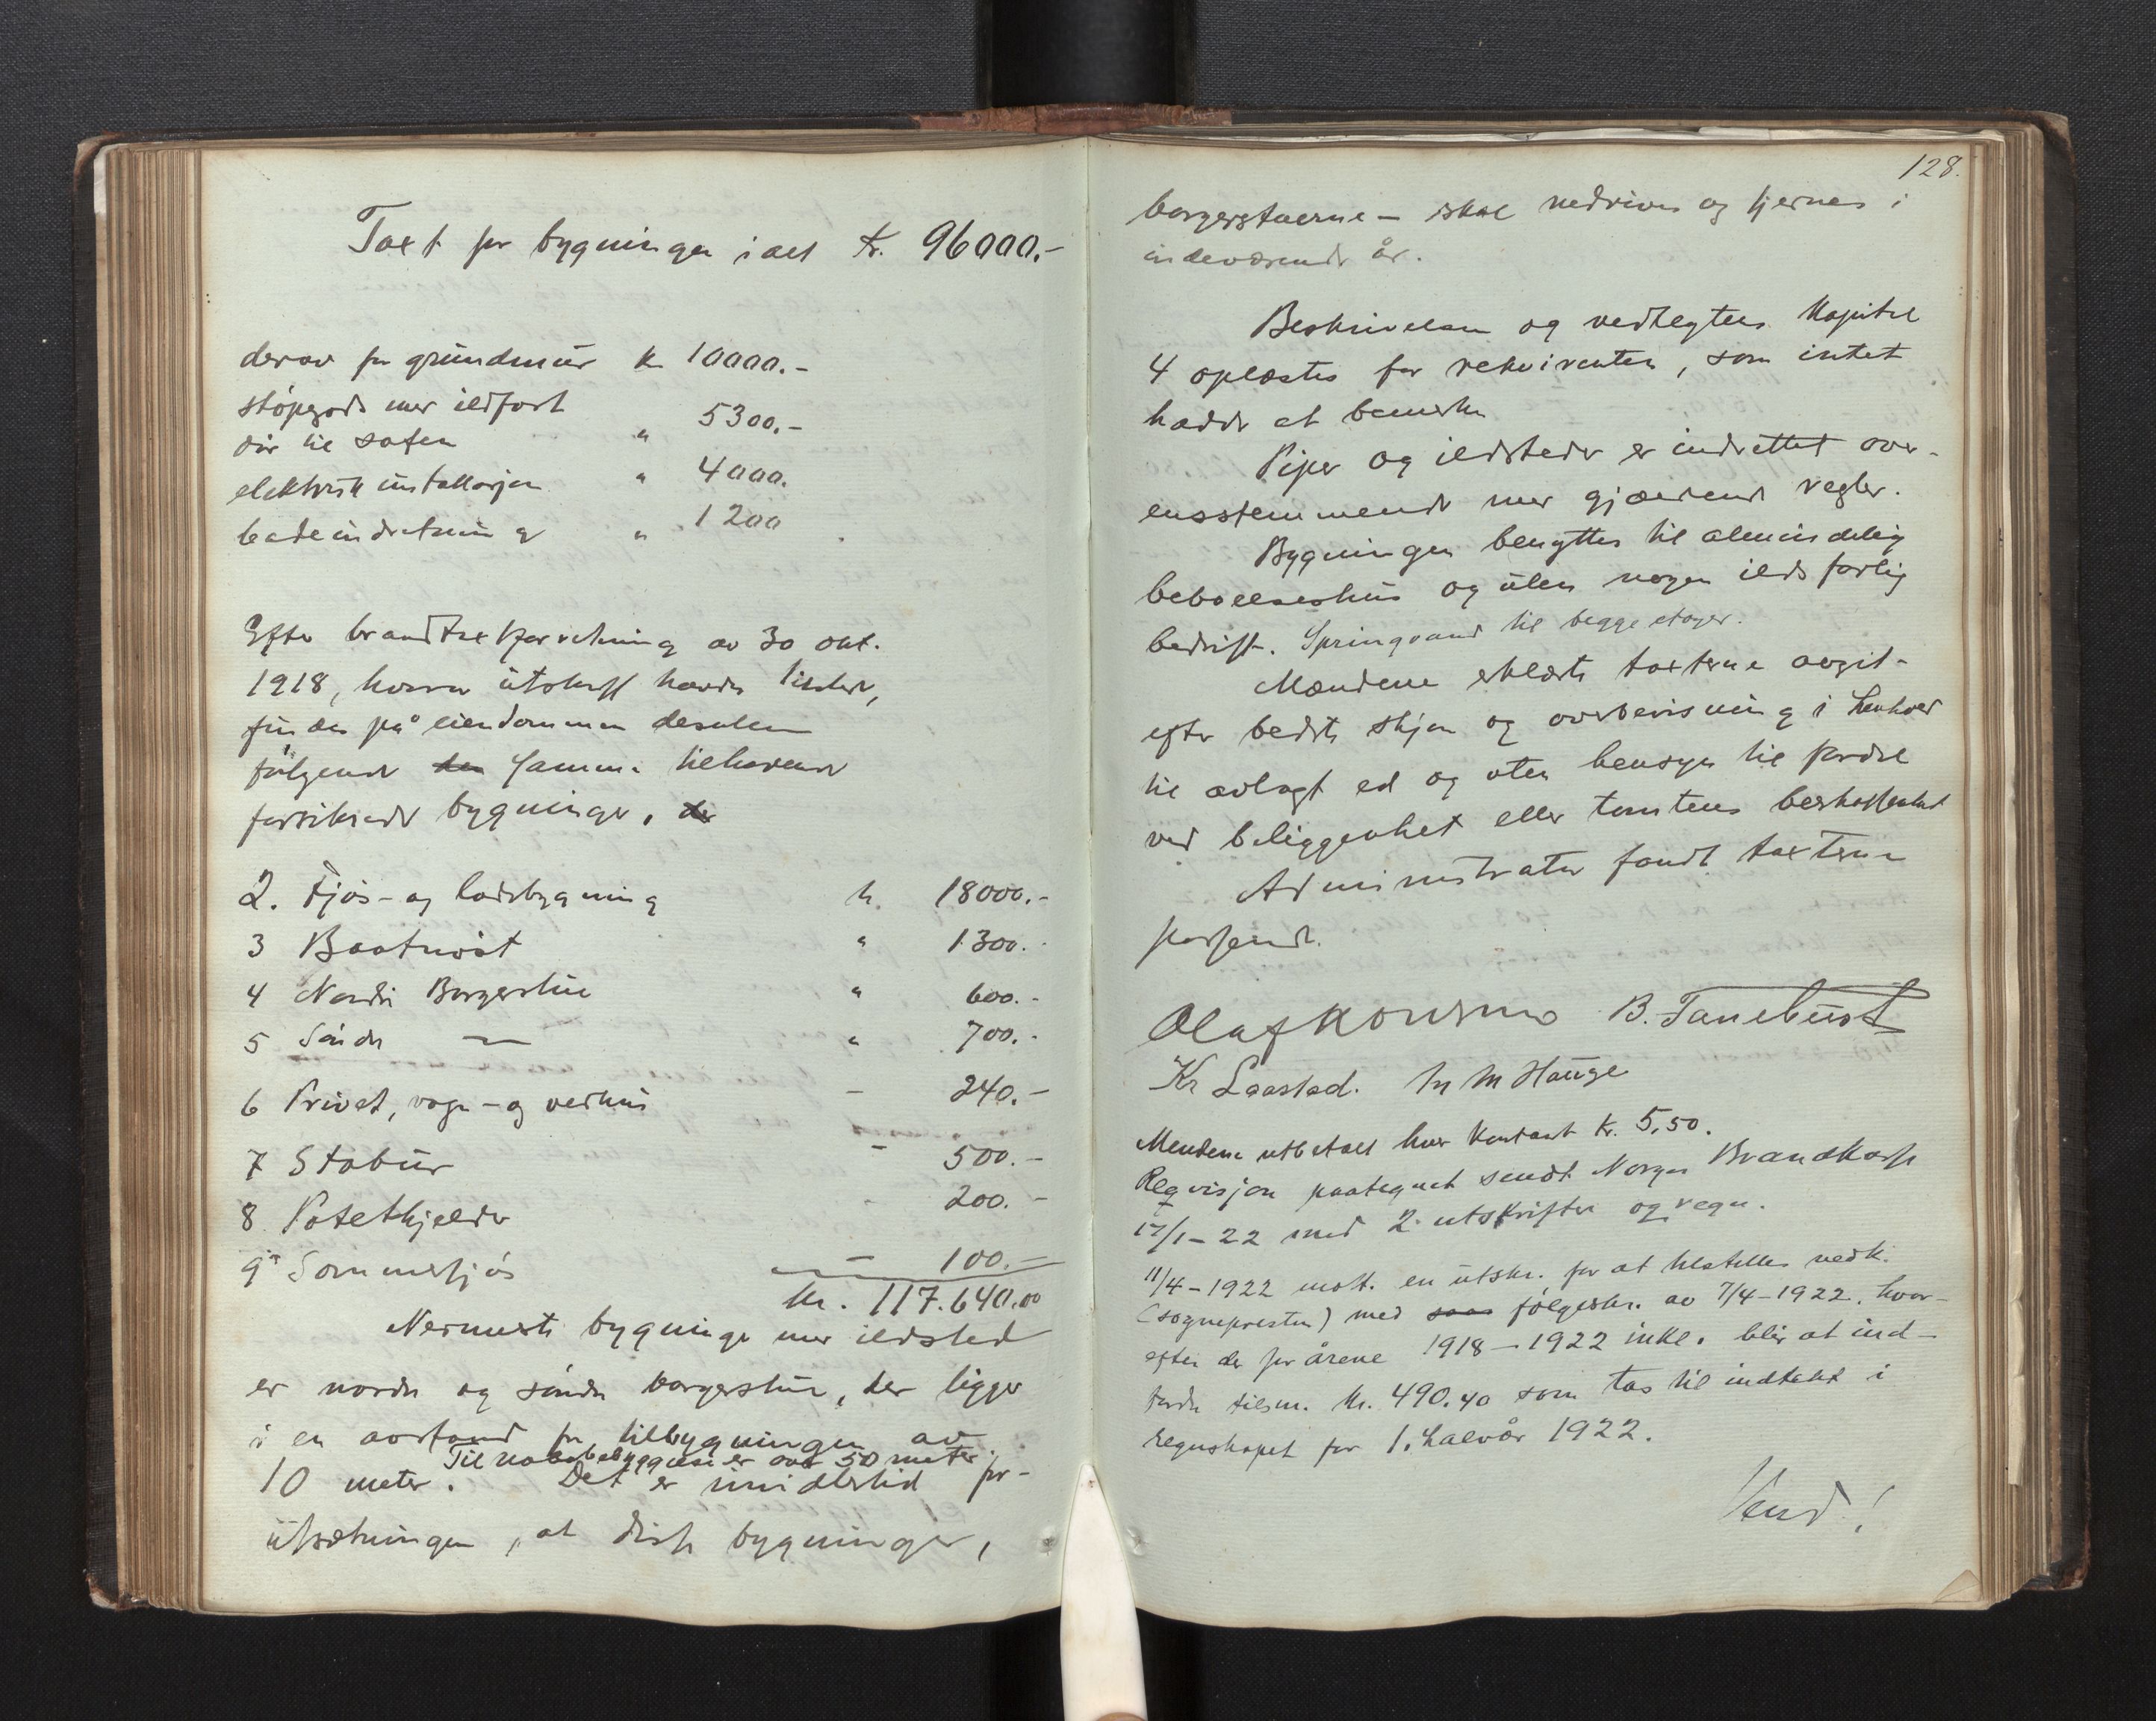 Taxt for bygningen i alt kr. 96000.-
derav for grundmur kr 10000.-
støpegods med ildfast
dør til safen " 5300.-
elektrisk installasjon " 4000.
badeindretning " 1200
Efter brandtaxtforretning av 30 okt.
1918, hvorav utskrift havdes tilstede,
findes på eiendommen desuten
følgende samme tilhørende
forsikrede bygninger.
2. Fjøs- og ladebygning kr. 18000.-
3 Baatnøst " 1300.-
4 Nordre Borgerstue " 600.-
5 Søndre — " 700.-
6 Privet, vogn- og vedhus - 240.-
7 Stabur - 500.-
8 Potetkjelder - 200.-
9 Sommerfjøs - 100.-
Kr. 117.640.00
Nermeste bygninger med ildsted
er nordre og søndre borgerstue, der ligger
i en avstand fra tilbygningen av
Til nabobebyggelse er over 50 meter
10 meter. Det er imidlertid for-
utsætningen, at disse bygninger,
128.
borgerstuerne – skal nedrives og fjernes i
indeværende år.
Beskrivelsen og vedtegtens kapitel
4 oplæstes for rekvirenten, som intet
hadde at bemerke
Piper og ildsteder er indrettet over-
ensstemmende med gjældende regler.
Bygningen benyttes til almindelig
beboelseshus og uten nogen ildsfarlig
bedrift. Springvand til begge etager.
Mændene erklærte taxterne avgit
efter bedste skjøn og overbevisning i henhold
til avlagt ed og uten hensyn til fordel
ved beliggenhet eller tomtens beskaffenhet
Administrator fandt taxterne
passende.
Olaf B. Tanebust
Kr Laastad. M M Hauge
Mendene utbetalt hver kontant kr. 5,50.
Reqvisjon paategnet sendt Norges Brandkasse
17/1-22 med 2 utskrifter og regn.
11/4-1922 mott. en utskr. for at tilstilles vedk.
(sognepresten) med følgeskr. av 7/4-1922, hvor-
efter der for årene 1918-1922 inkl. blir at ind-
fordre tilsm. kr. 490.40 som tas til indtekt i
regnskapet for 1. halvår 1922.
Vend!